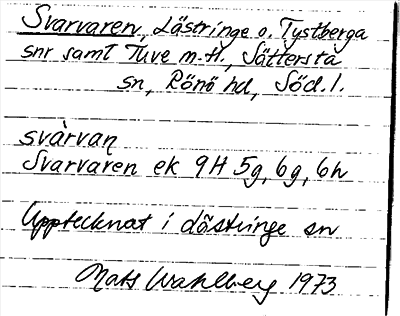 Svarvaren, Lästringe o. Tystberga
snr samt Tuve m.fl., Sättersta
sn, Rönö hd, Söd. l.
svàrvan
Svarvaren ek 9H 5g, 6g, 6h
Upptecknat i Lästringe sn
Mats Wahlberg 1973